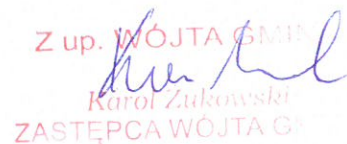 Z up. WÓJTA GMIN
Karol Żukowski
ZASTĘPCA WÓJTA G